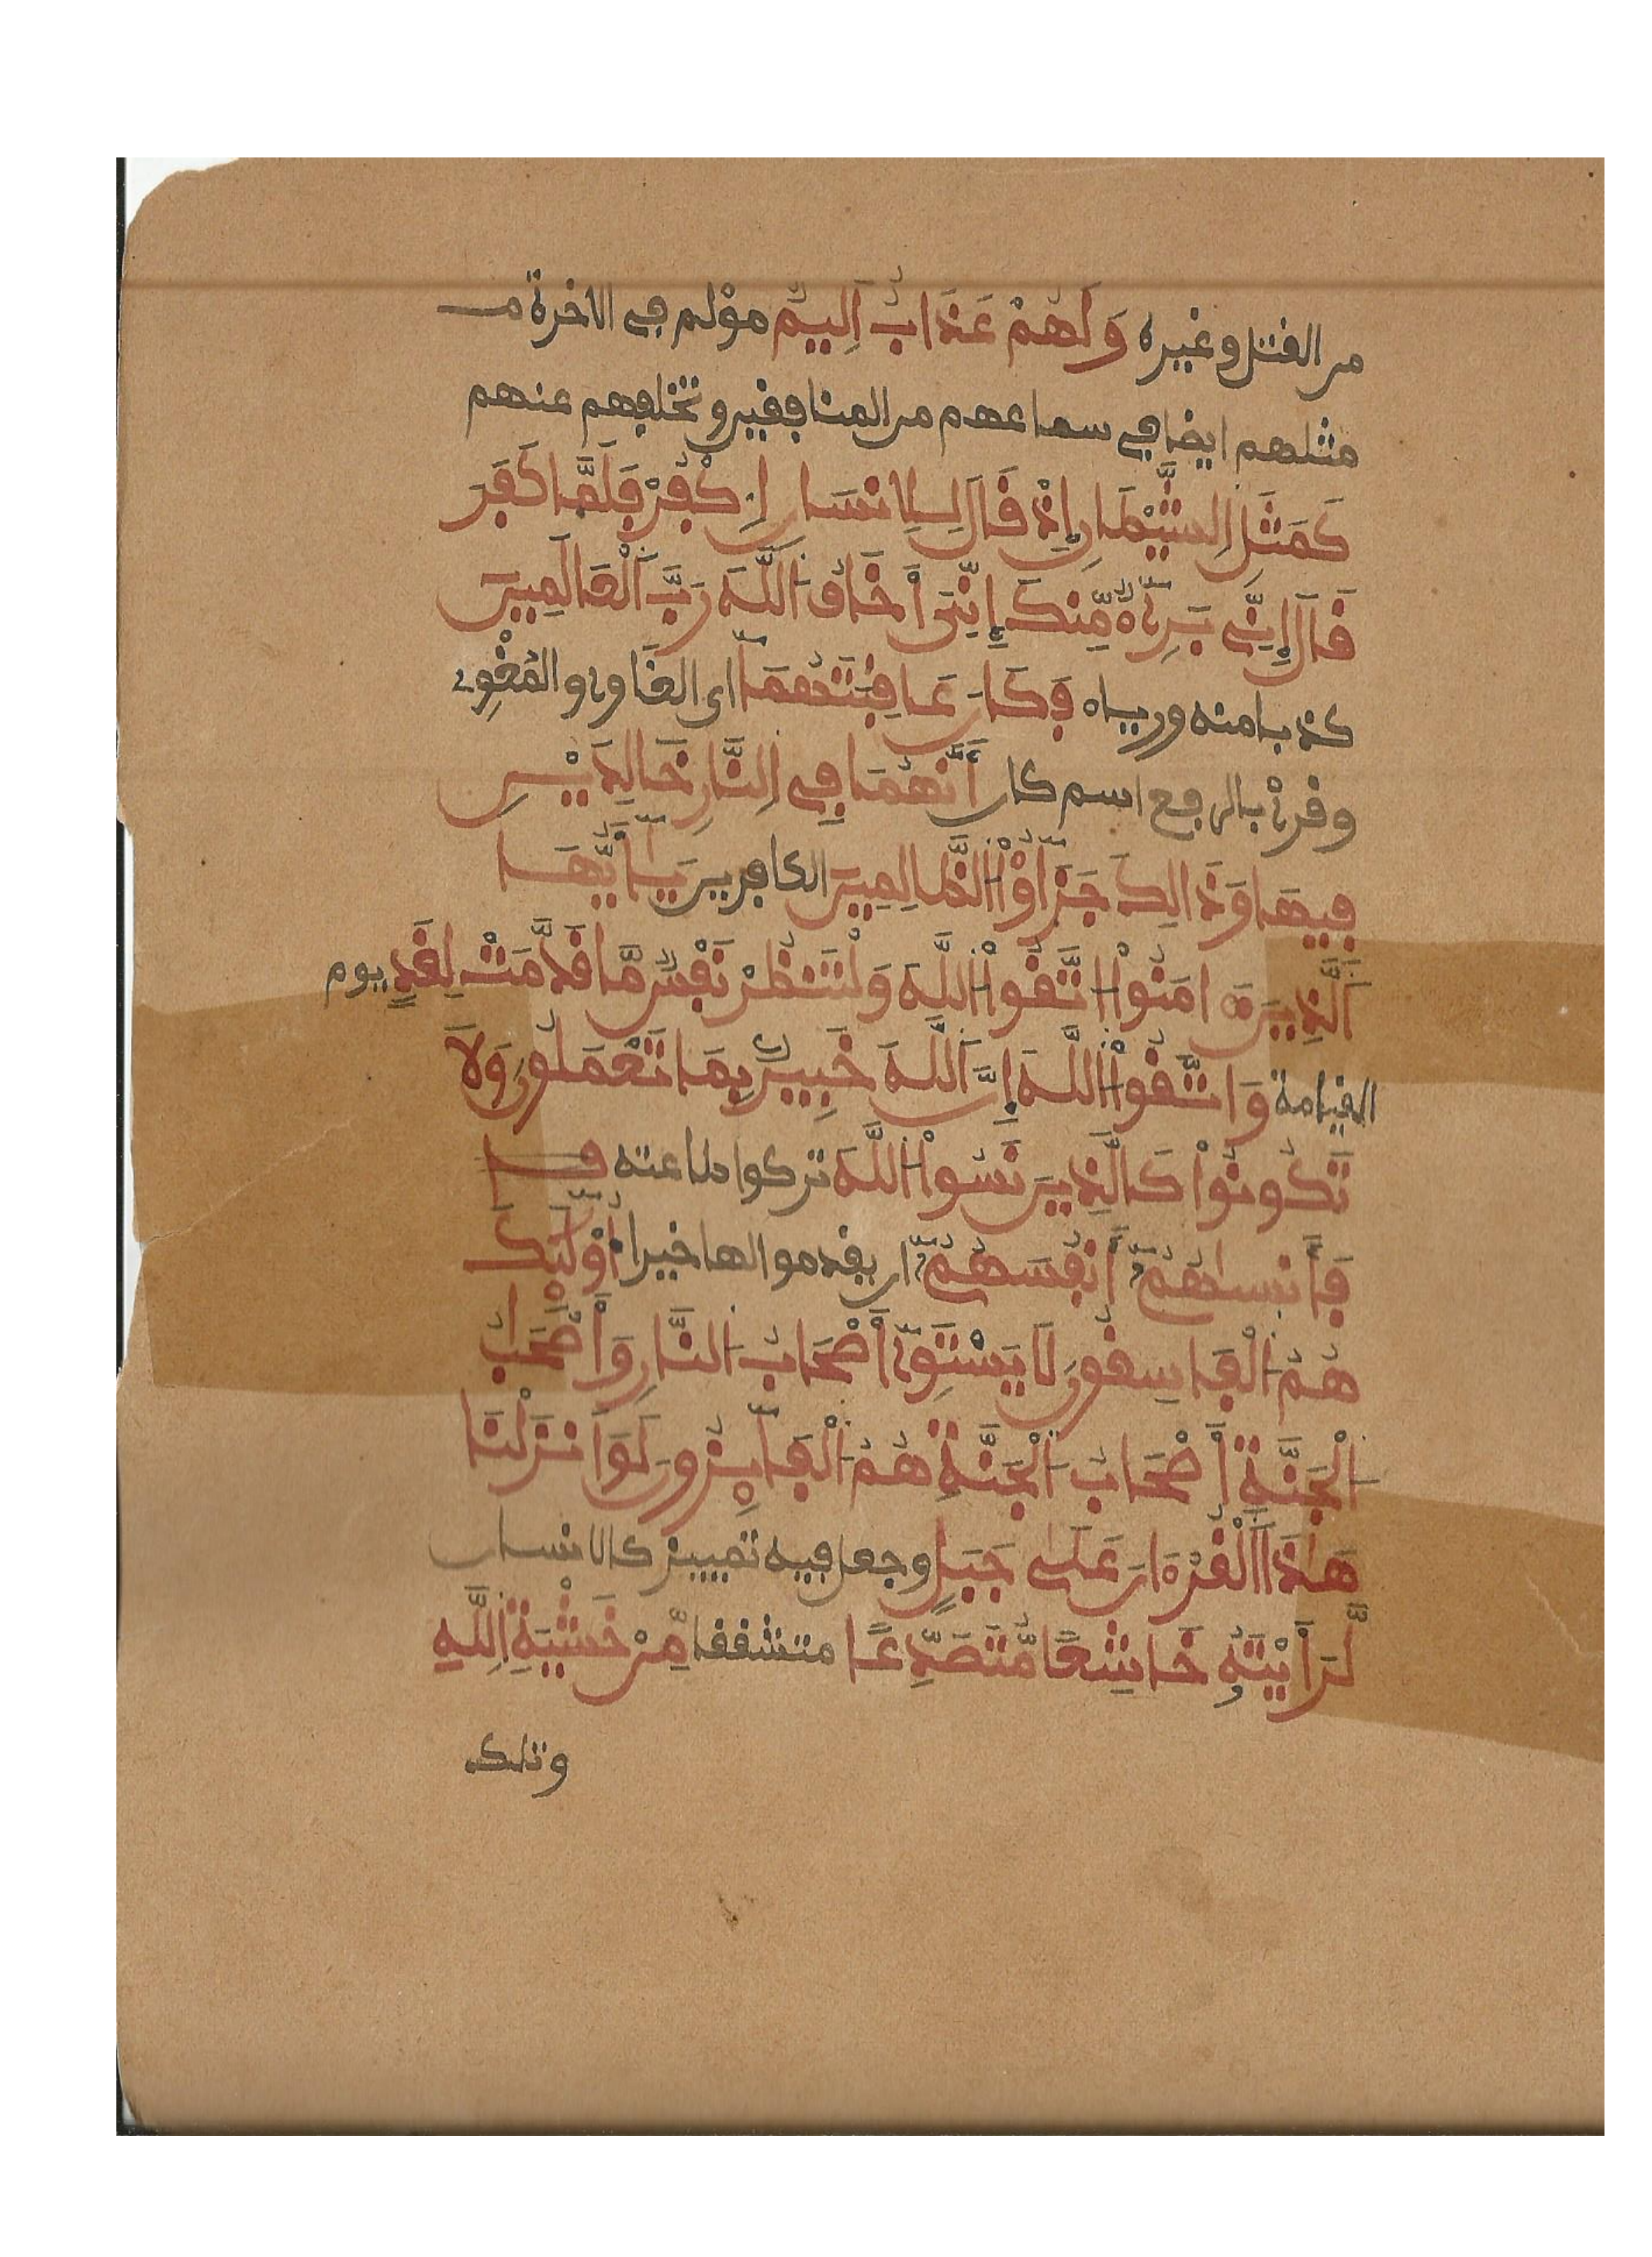 من القتل وغيره وَلَهُمْ عَذَابٌ اَلِيمٌ مؤلم في الاخرة مـ
مثلهم ايضا في سماعهم من المنافقين وتخلفهم عنهم
كَمَثَلِ اِلشَّيْطَانِ إِذْ قَالَ لِلِانسَانِ اِ۟كْفُرْ فَلَمَّا كَفَرَ
قَالَ إِنِّي بَرِيٓءٌ مِّنكَ إِنِّيَ أَخَافُ اَللَّهَ رَبَّ اَلْعَالَمِينَ
كذبا منه ورياء فَكَانَ عَاقِبَتُهُمَآ اي الغاوي والمُغْوِي
وقرئ بالرفع اسم كان أَنَّهُمَا فِي اِلنَّارِ خَالِدَيْنِ
فِيهَا وَذَالِكَ جَزَٰٓؤُاْ اَلظَّالِمِينَ الكافرين يَٰٓأَيُّهَا
اَلَّذِينَ ءَامَنُواْ اُ۟تَّقُواْ اُللَّهَ وَلْتَنظُرْ نَفْسٌ مَّا قَدَّمَتْ لِغَدٍ يوم
القيامة وَاتَّقُواْ اُللَّهَ إِنَّ اَللَّهَ خَبِيرٌ بِمَا تَعْمَلُونَ وَلَا
تَكُونُواْ كَالَّذِينَ نَسُواْ اُللَّهَ تركوا طاعته فـا
فَأَنسَىٰهُمُۥٓ أَنفُسَهُمُۥٓ ان يقدموا لها خيرا أُوْلَٰٓئِكَ
هُمُ اُلْفَاسِقُونَ لَا يَسْتَوِيٓ أَصْحَابُ اُلنَّارِ وَأَصْحَابُ
اُلْجَنَّةِ أَصْحَابُ اُلْجَنَّةِ هُمُ اُلْفَآئِزُونَ لَوَ اَنزَلْنَا
هَٰذَا اَلْقُرْءَانَ عَلَىٰ جَبَلٍ وجعل فيه تمييز كالانسان
لَّرَأَيْتَهُۥ خَاشِعًا مُّتَصَدِّعًا متشققا مِّنْ خَشْيَةِ اِللَّهِ
وتلك